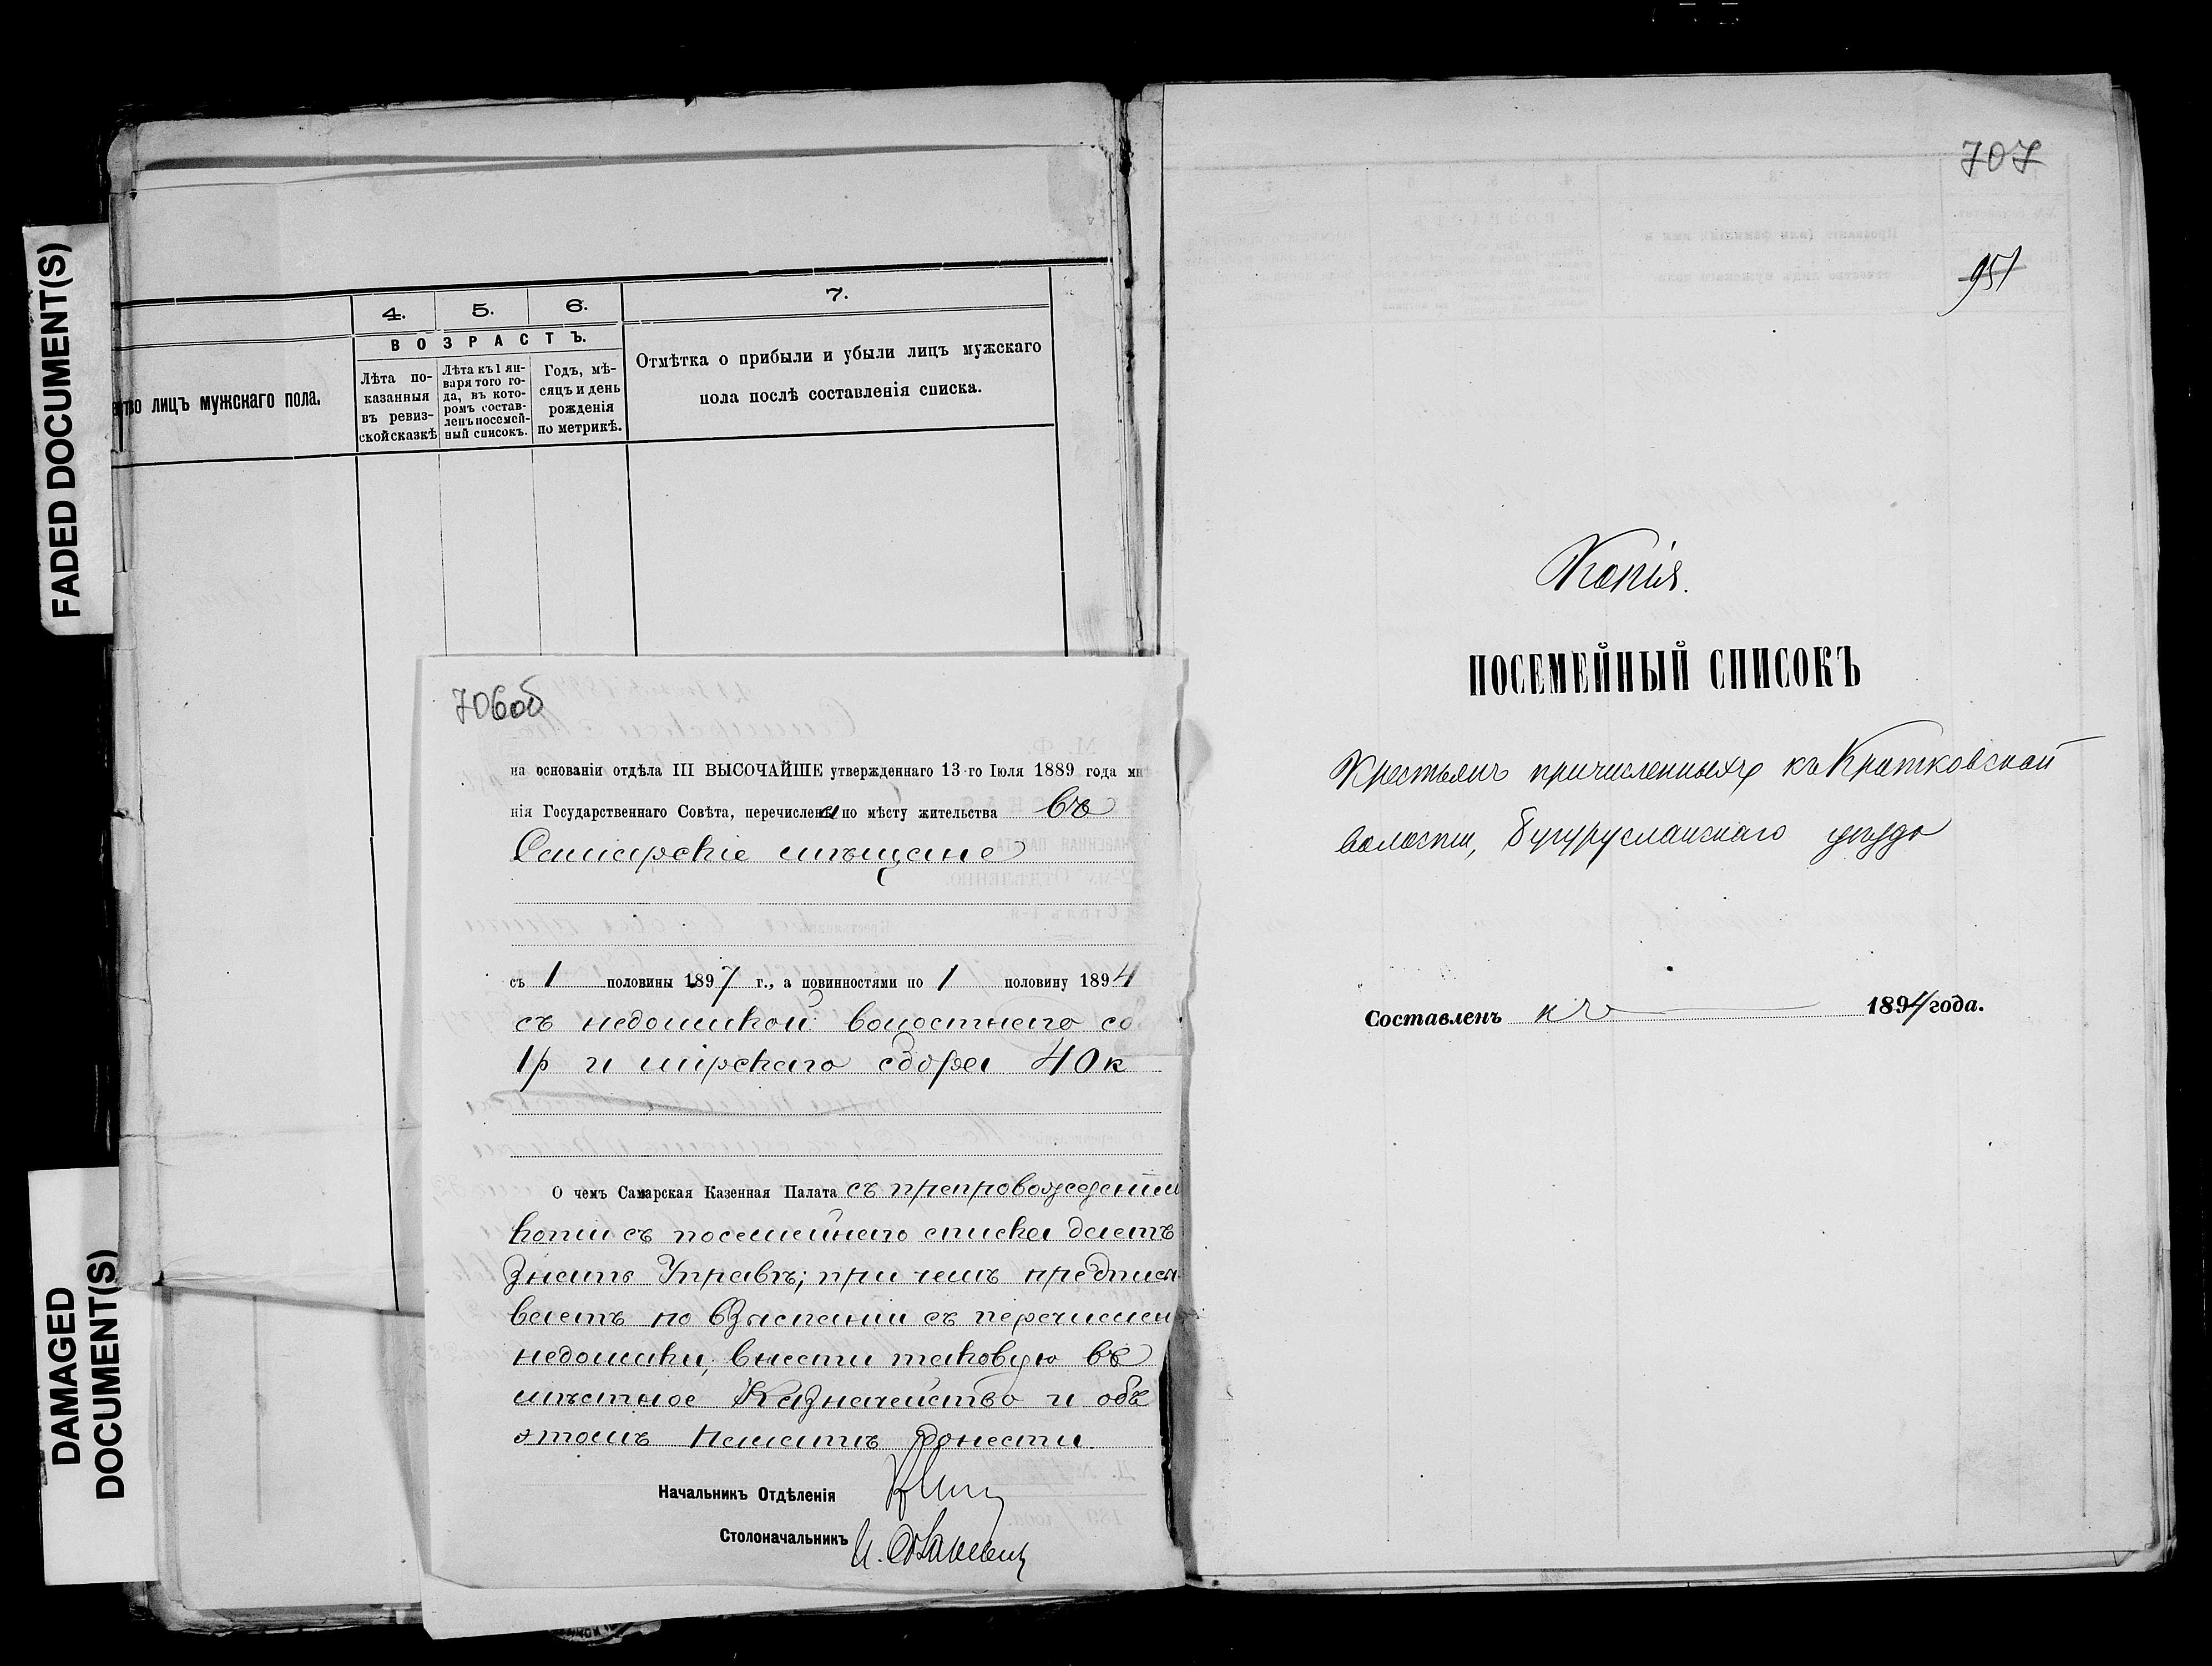 FADED DOCUMENT(S)
DAMAGED
DOCUMENT(S)
4.
5.
6.
7.
ВОЗРАСТЪ.
лицъ мужскаго пола.
Лѣта по-
казанныя
въ ревиз-
ской сказкѣ
Лѣта къ 1 ян-
варя того го-
да, въ кото-
ромъ состав-
ленъ посемей-
ный списокъ.
Годъ, мѣ-
сяцъ и день
рожденія
по метрикѣ.
Отмѣтка о прибыли и убыли лицъ мужскаго
пола послѣ составленія списка.
706об
на основаніи отдѣла III ВЫСОЧАЙШЕ утвержденнаго 13-го Іюля 1889 года мнѣ
нія Государственнаго Совѣта, перечислены по мѣсту жительства въ
Самарскіе мѣщане
съ 1 половины 1897 г., а повинностями по 1 половину 1894
съ недоимкой волостнаго со
1 р и мірскаго сбора 40 к
О чемъ Самарская Казенная Палата съ препровожденіем
копіи съ посемейнаго списка даетъ
знать Управѣ; при чемъ предписы
ваетъ по взысканіи съ перечислен
недоимки, внести таковую въ
мѣстное Казначейство и объ
этомъ Палатѣ донести.
Начальникъ Отдѣленія
Столоначальникъ
707
951
Копія.
ПОСЕМЕЙНЫЙ СПИСОКЪ
Крестьянъ причисленныхъ къ Кротковской
волости, Бугурусланскаго уѣзда
Составленъ къ 1894 года.